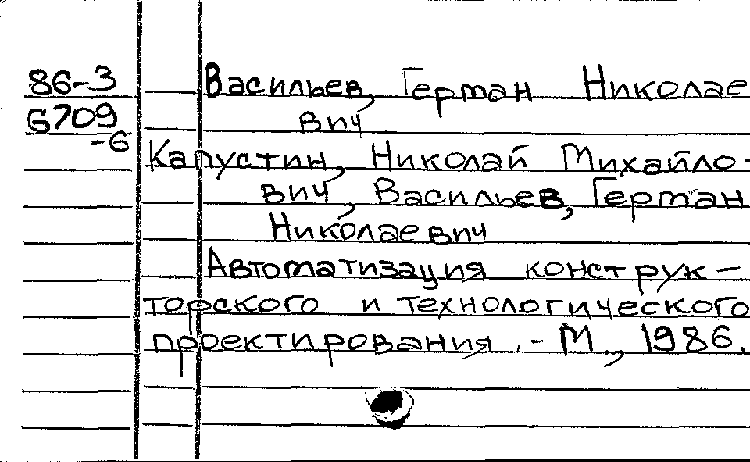 86-3 Васильев, Герман Николае
6709 вич
-6 Капустин, Николай Михайло-
вич, Васильев, Герман
Николаевич
Автоматизация конструк-
торского и технологического
проектирования. - М., 1986.